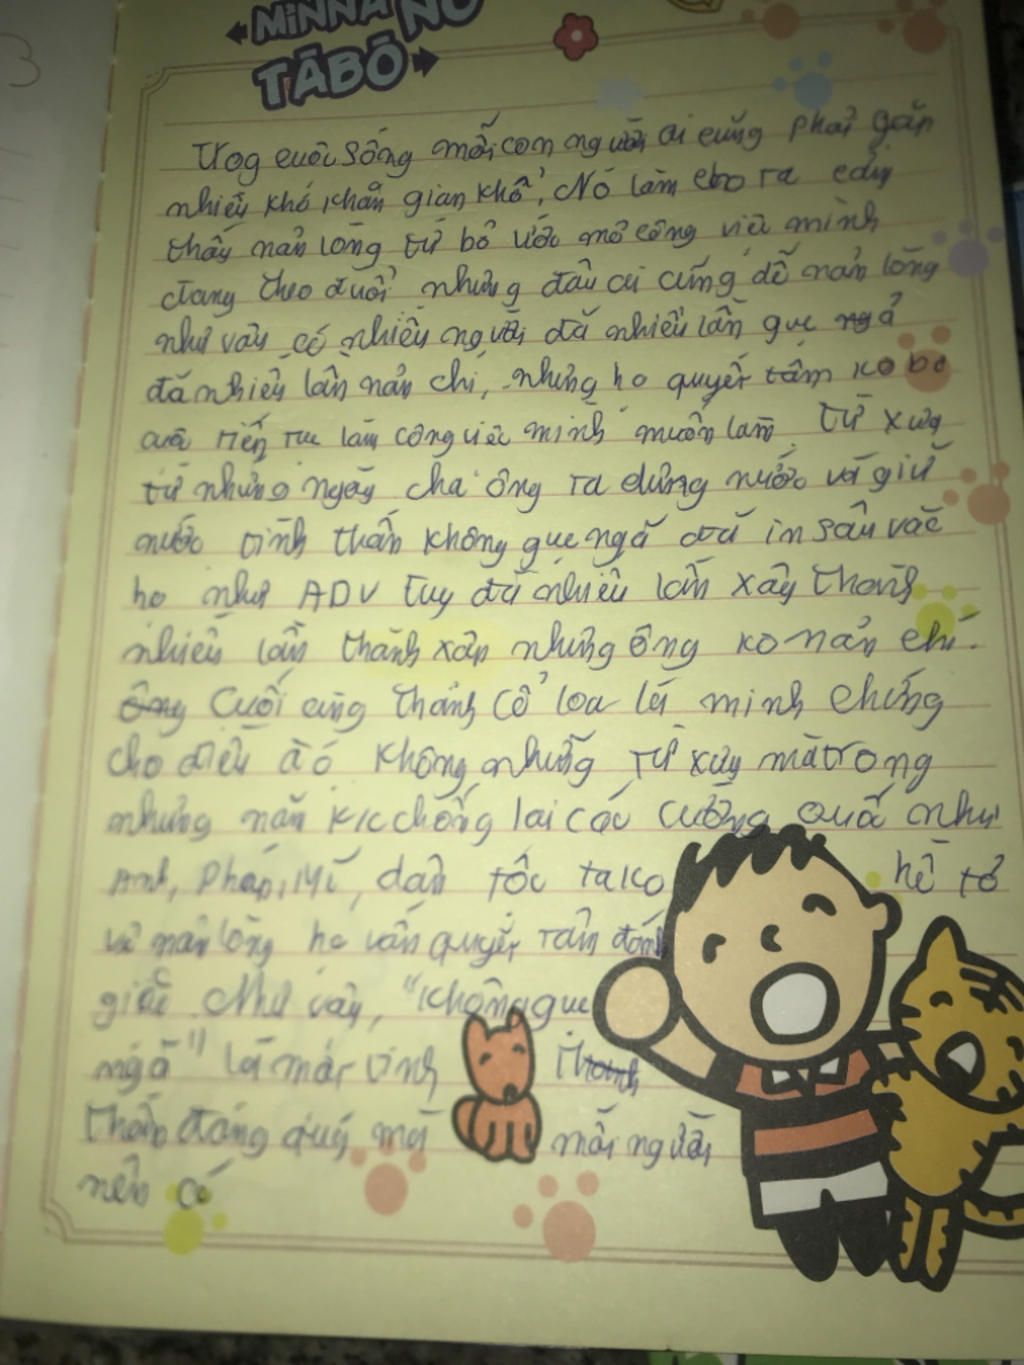 MINNA NO
TABŌ
Trog cuôc sống mỗi con người ai cũng phải gặp
nhiều khó khăn gian khổ, Nó làm cho ta cảm
thấy nản lòng từ bỏ ước mơ công việc mình
đang theo đuổi nhưng đâu ai cũng dễ nản lòng
như vậy có nhiều người đã nhiều lần gục ngã
đã nhiều lần nản chí, nhưng họ quyết tâm ko bỏ
tiếp tục làm công việc mình muốn làm. Từ xưa
từ những ngày cha ông ta dựng nước và giữ
nước tinh thần không gục ngã đã in sâu vào
họ như ADV tuy đã nhiều lần xây thành
nhiều lần thành xập nhưng ông ko nản chí.
Ông Cuối cùng thành Cổ loa là minh chứng
cho điều đó không những từ xưa mà trong
những năm k/c chống lại các cường quố như
Anh, Pháp, Mĩ, dân tộc ta ko hề tỏ
vẻ nản lòng họ vẫn quyết tâm đánh
giặc. Như vậy, "không gục
ngã" là một tinh
thần đáng quý mà mỗi người
nên có